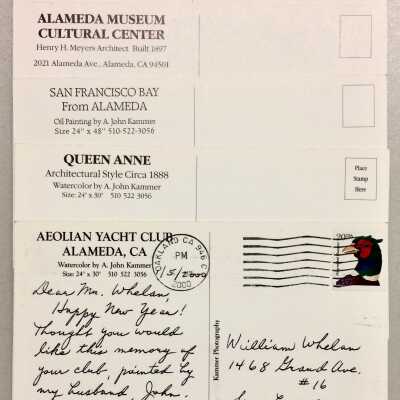 ALAMEDA MUSEUM
CULTURAL CENTER
Henry H. Meyers Architect Built 1897
2021 Alameda Ave., Alameda, CA 94501
SAN FRANCISCO BAY
From ALAMEDA
Oil Painting by A. John Kammer
Size 24" x 48" 510-522-3056
QUEEN ANNE
Architectural Style Circa 1888
Watercolor by A. John Kammer
Size 24" x 30" 510-522-3056
Place
Stamp
Here
AEOLIAN YACHT CLUB
ALAMEDA, CA
Watercolor by A. John Kammer
Size: 24" x 30" 510 522 3056
OAKLAND CA 946
PM
2000
20
Dear Mr. Whelan,
Happy New Year!
Thought you would
like this memory of
your club, painted by
my husband, John.
Kammer Photography
William Whelan
1468 Grand Ave.
#16